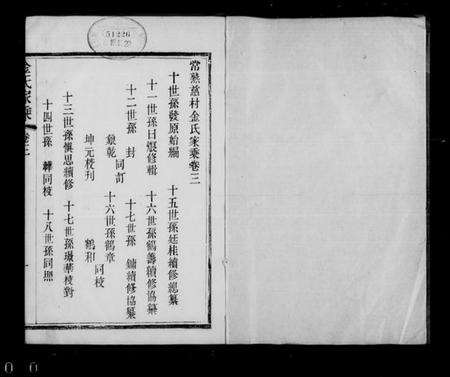 常熟慈村金氏家乘卷三
十世孫發原始編 十五世孫廷桂續修總纂
十一世孫日 修輯 十六世孫鶴 續修協纂
十二世孫 封 同訂 十七世孫 鏞續修協纂
乾 十六世孫鶴章 同校
坤元校刊 鶴和
十三世孫慎思續修 十七世孫 華校對
十四世孫 同校 十八世孫同熙
金氏家乘 卷三 一
51226
0 0